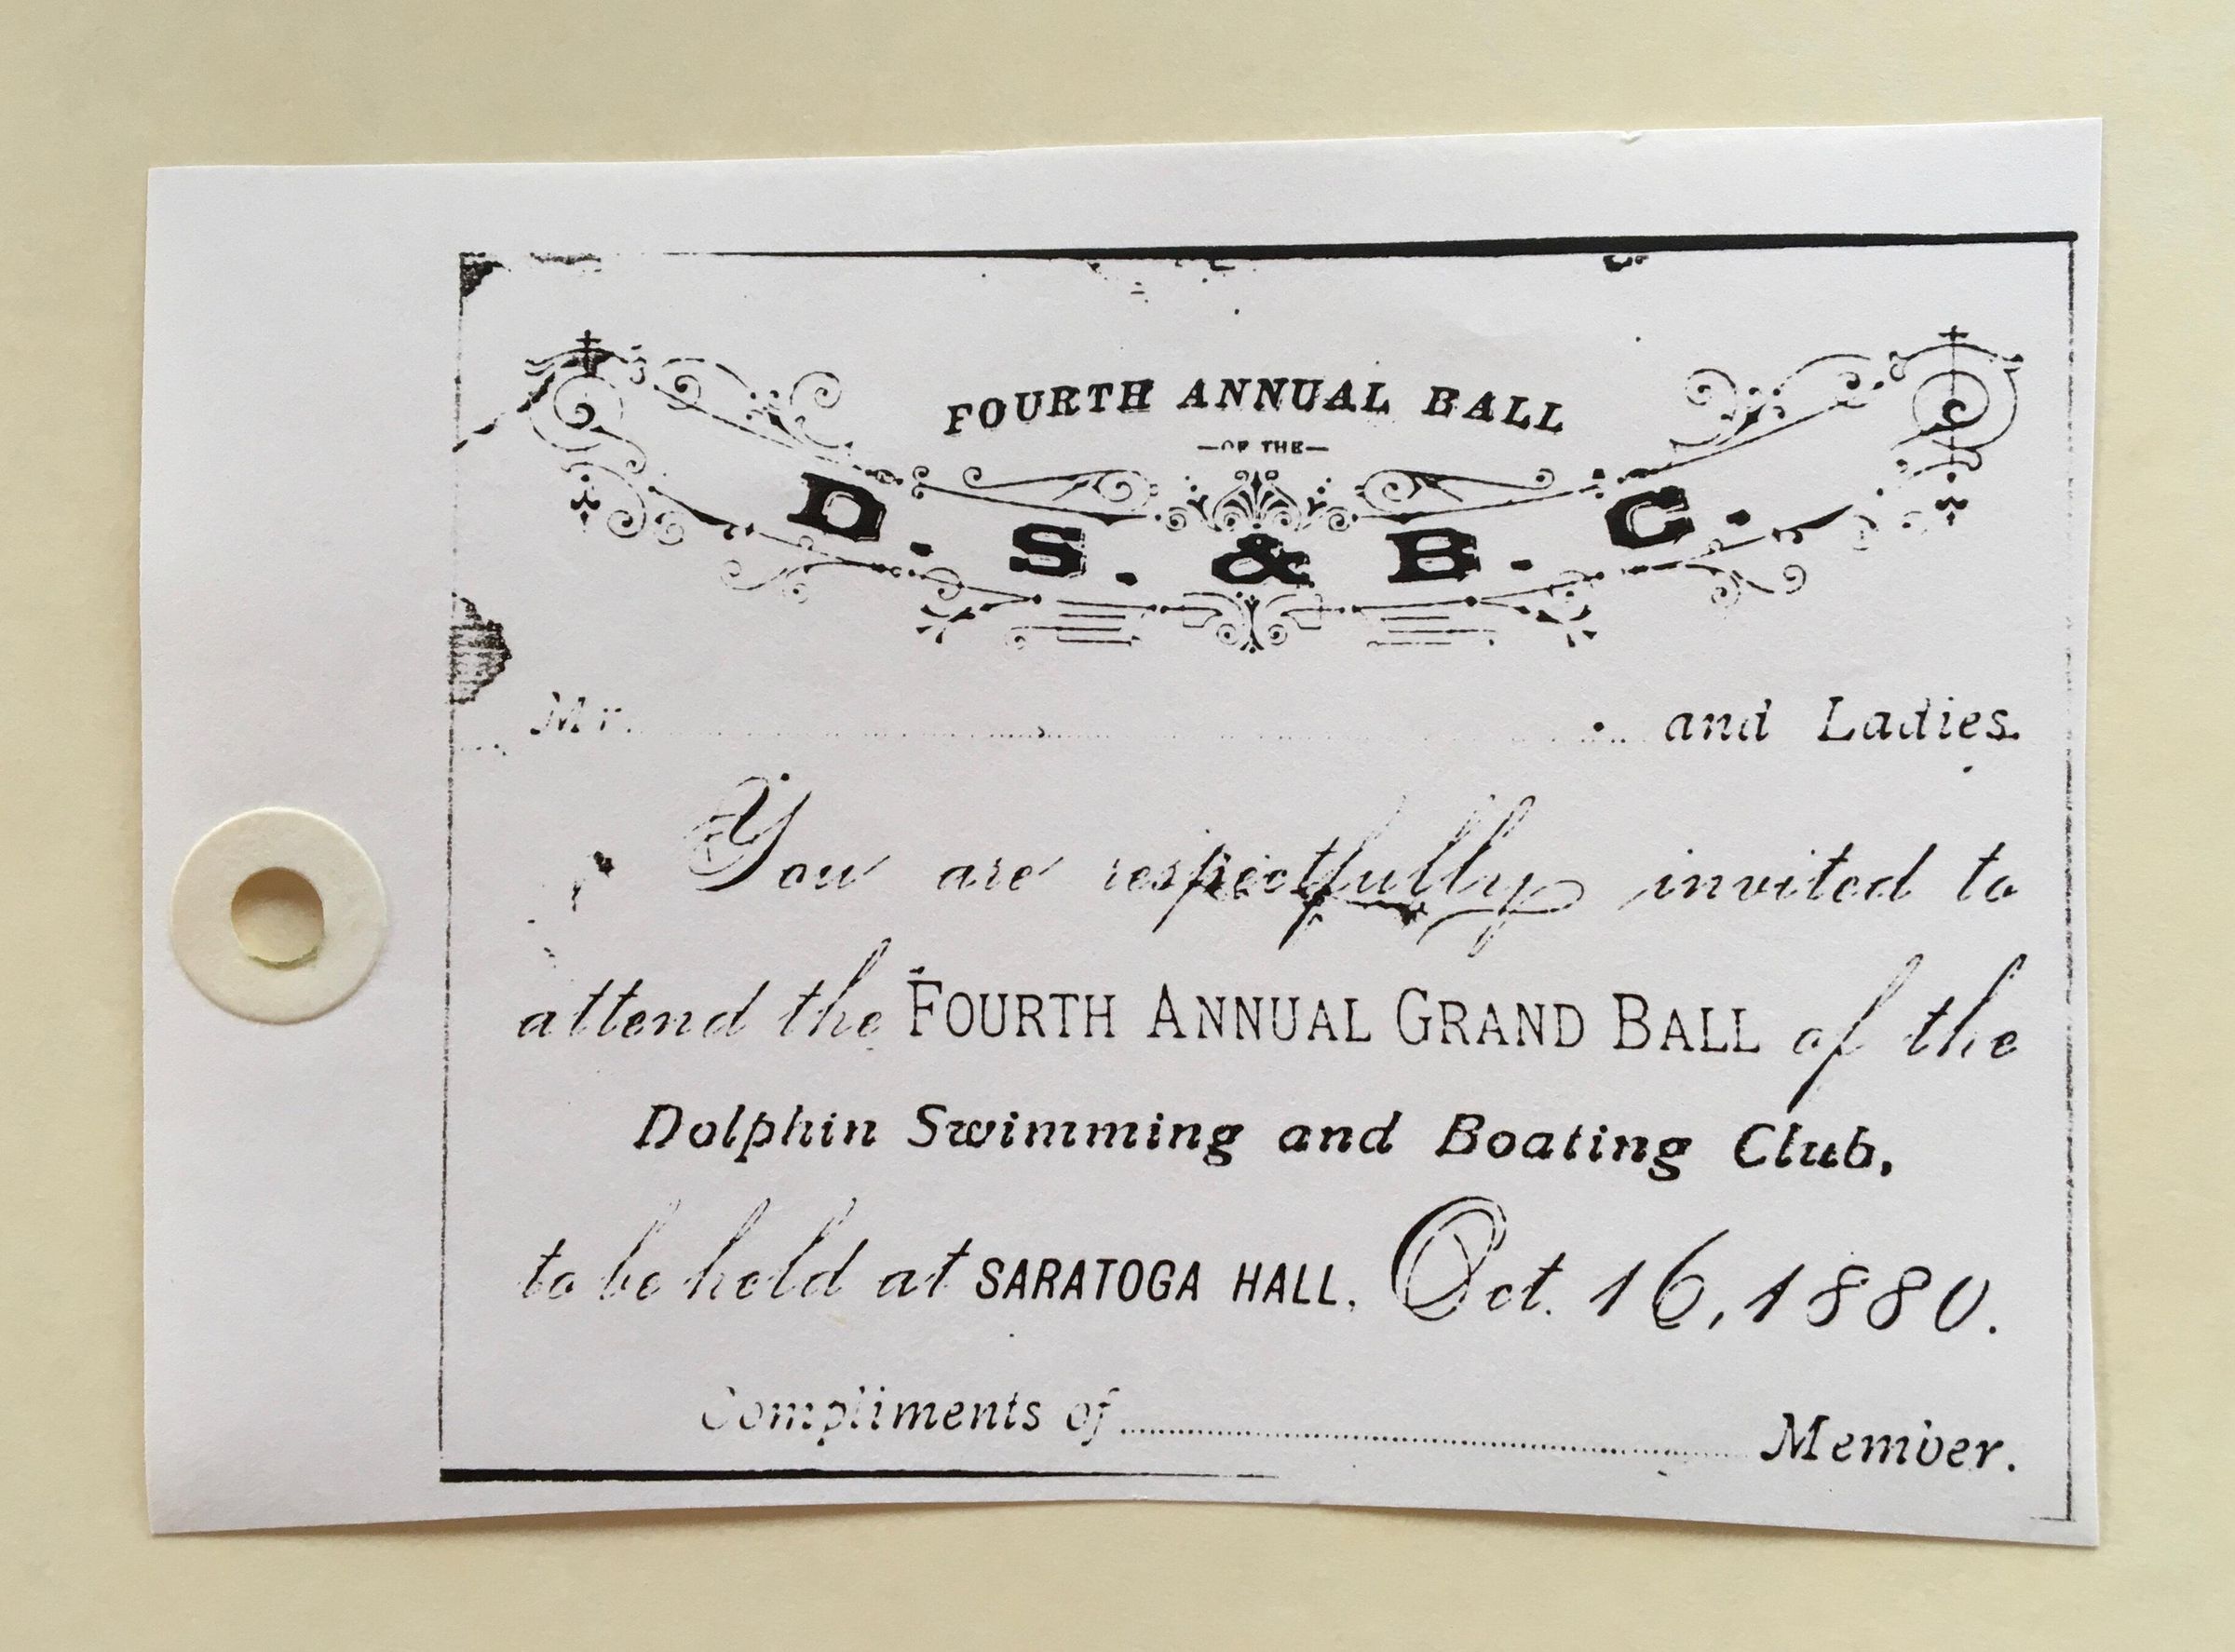 FOURTH ANNUAL BALL
—OF THE—
D. S. & B. C.
Mr. and Ladies.
You are respectfully invited to
attend the FOURTH ANNUAL GRAND BALL of the
Dolphin Swimming and Boating Club,
to be held at SARATOGA HALL, Oct. 16, 1880.
Compliments of Member.